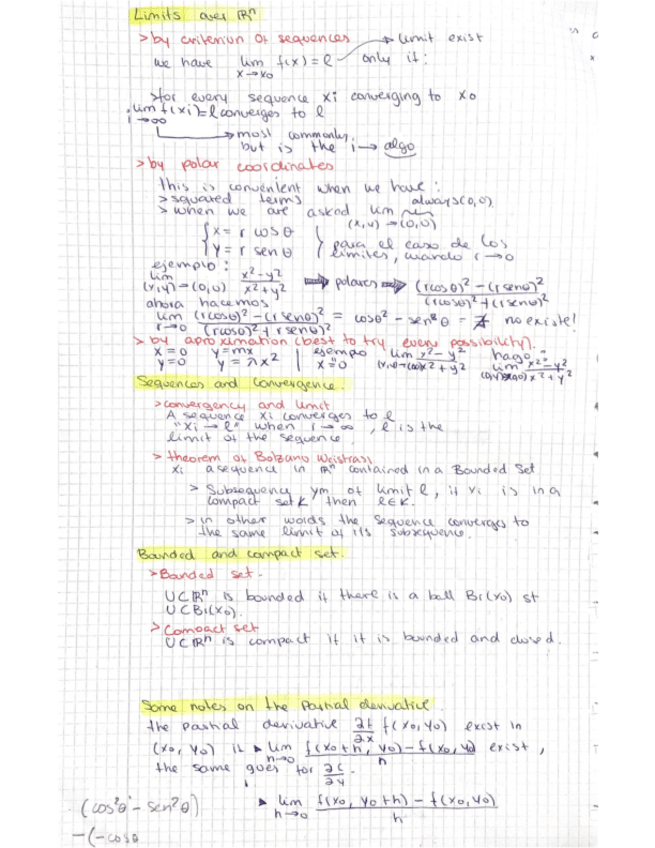 Limits over ℝⁿ
> by criterion of sequences → limit exist
we have lim x→x₀ f(x) = ℓ only if:
> for every sequence xi converging to x₀
lim i→∞ f(xi) = ℓ converges to ℓ
→ most commonly,
but is the i → algo
> by polar coordinates
this is convenient when we have:
> squated terms always (0,0)
> when we are asked lim (x,y)→(0,0)
{ x = r cos θ
{ y = r sen θ } para el caso de los límites, cuando r→0
ejemplo:
lim (x,y)→(0,0) x²-y² / x²+y² ⇒ polares ⇒ (rcosθ)² - (rsenθ)² / (rcosθ)² + (rsenθ)²
ahora hacemos
lim r→0 (rcosθ)² - (rsenθ)² / (rcosθ)² + rsenθ)² = cosθ² - sen²θ = ∄ no existe!
> by aproximation (best to try every possibility).
x = 0 y = mx | ejempo lim x²-y² / x²+y² hago:
y = 0 y = λx² | x = 0 lim x²-y² / x²+y²
Sequences and Convergence.
> convergency and limit
A sequence xi converges to ℓ
"xi → ℓ" when i → ∞, ℓ is the
limit of the sequence.
> theorem of Bolzano Weistrass
xi a sequence in ℝⁿ contained in a Bounded Set
> Subsequency ym of limit ℓ, if yi is in a
compact set K then ℓ∈K.
> in other words the sequence converges to
the same limit of its subsequence.
Bounded and compact set.
> Bonded set.
U⊂ℝⁿ is bounded if there is a ball Br(x₀) st
U⊂Br(x₀).
> Compact set
U⊂ℝⁿ is compact if it is bounded and closed.
Some notes on the Partial derivative.
the partial derivative ∂f/∂x f(x₀, y₀) exist in
(x₀, y₀) if ▸ lim h→0 f(x₀+h, y₀) - f(x₀, y₀) / h exist,
the same goes for ∂f/∂y.
▸ lim h→0 f(x₀, y₀+h) - f(x₀, y₀) / h
(cos²θ - sen²θ)
-(-cosθ